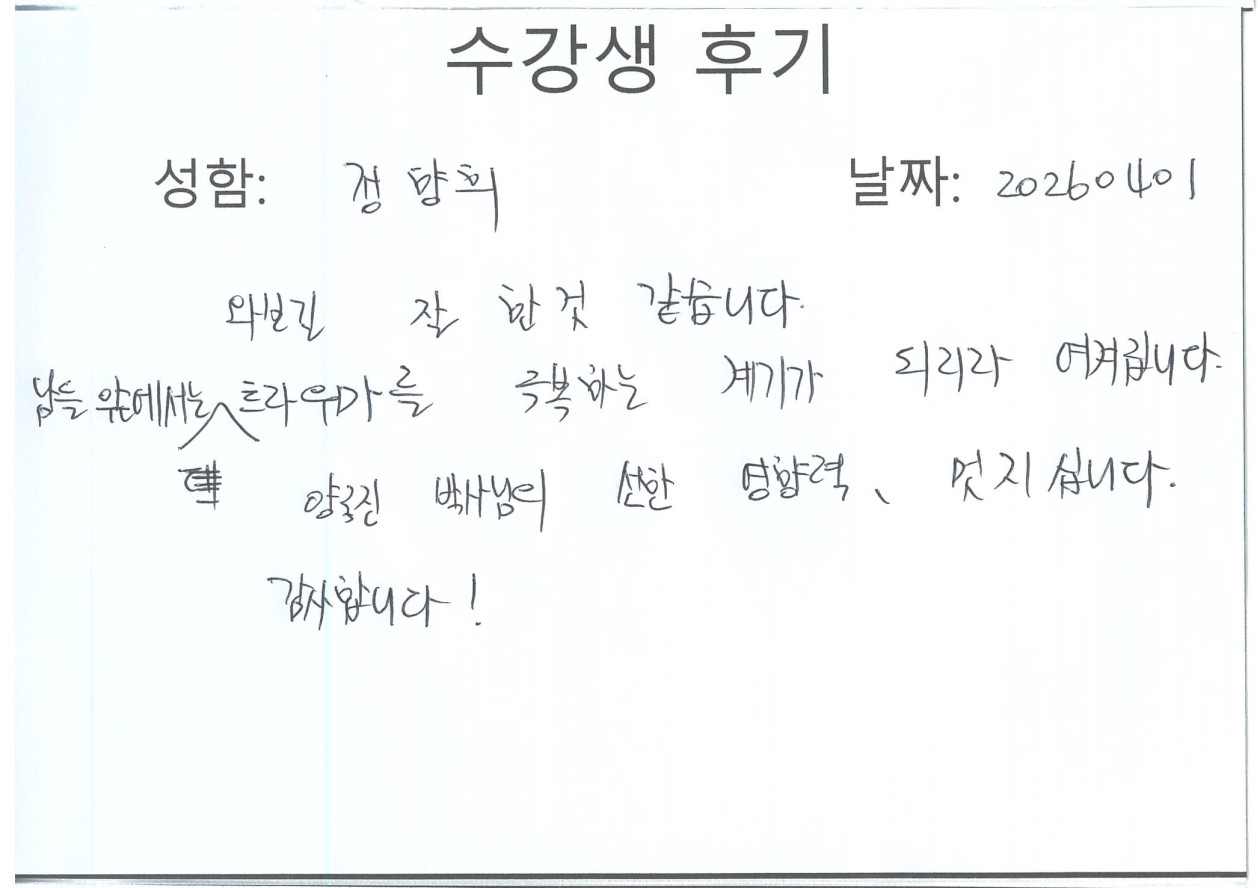 수강생 후기
성함: 정향희 날짜: 20260401
와보길 잘 한 것 같습니다.
남들 앞에서는 트라우마를 극복하는 계기가 되리라 여겨집니다.
양국진 박사님의 선한 영향력, 멋지십니다.
감사합니다!